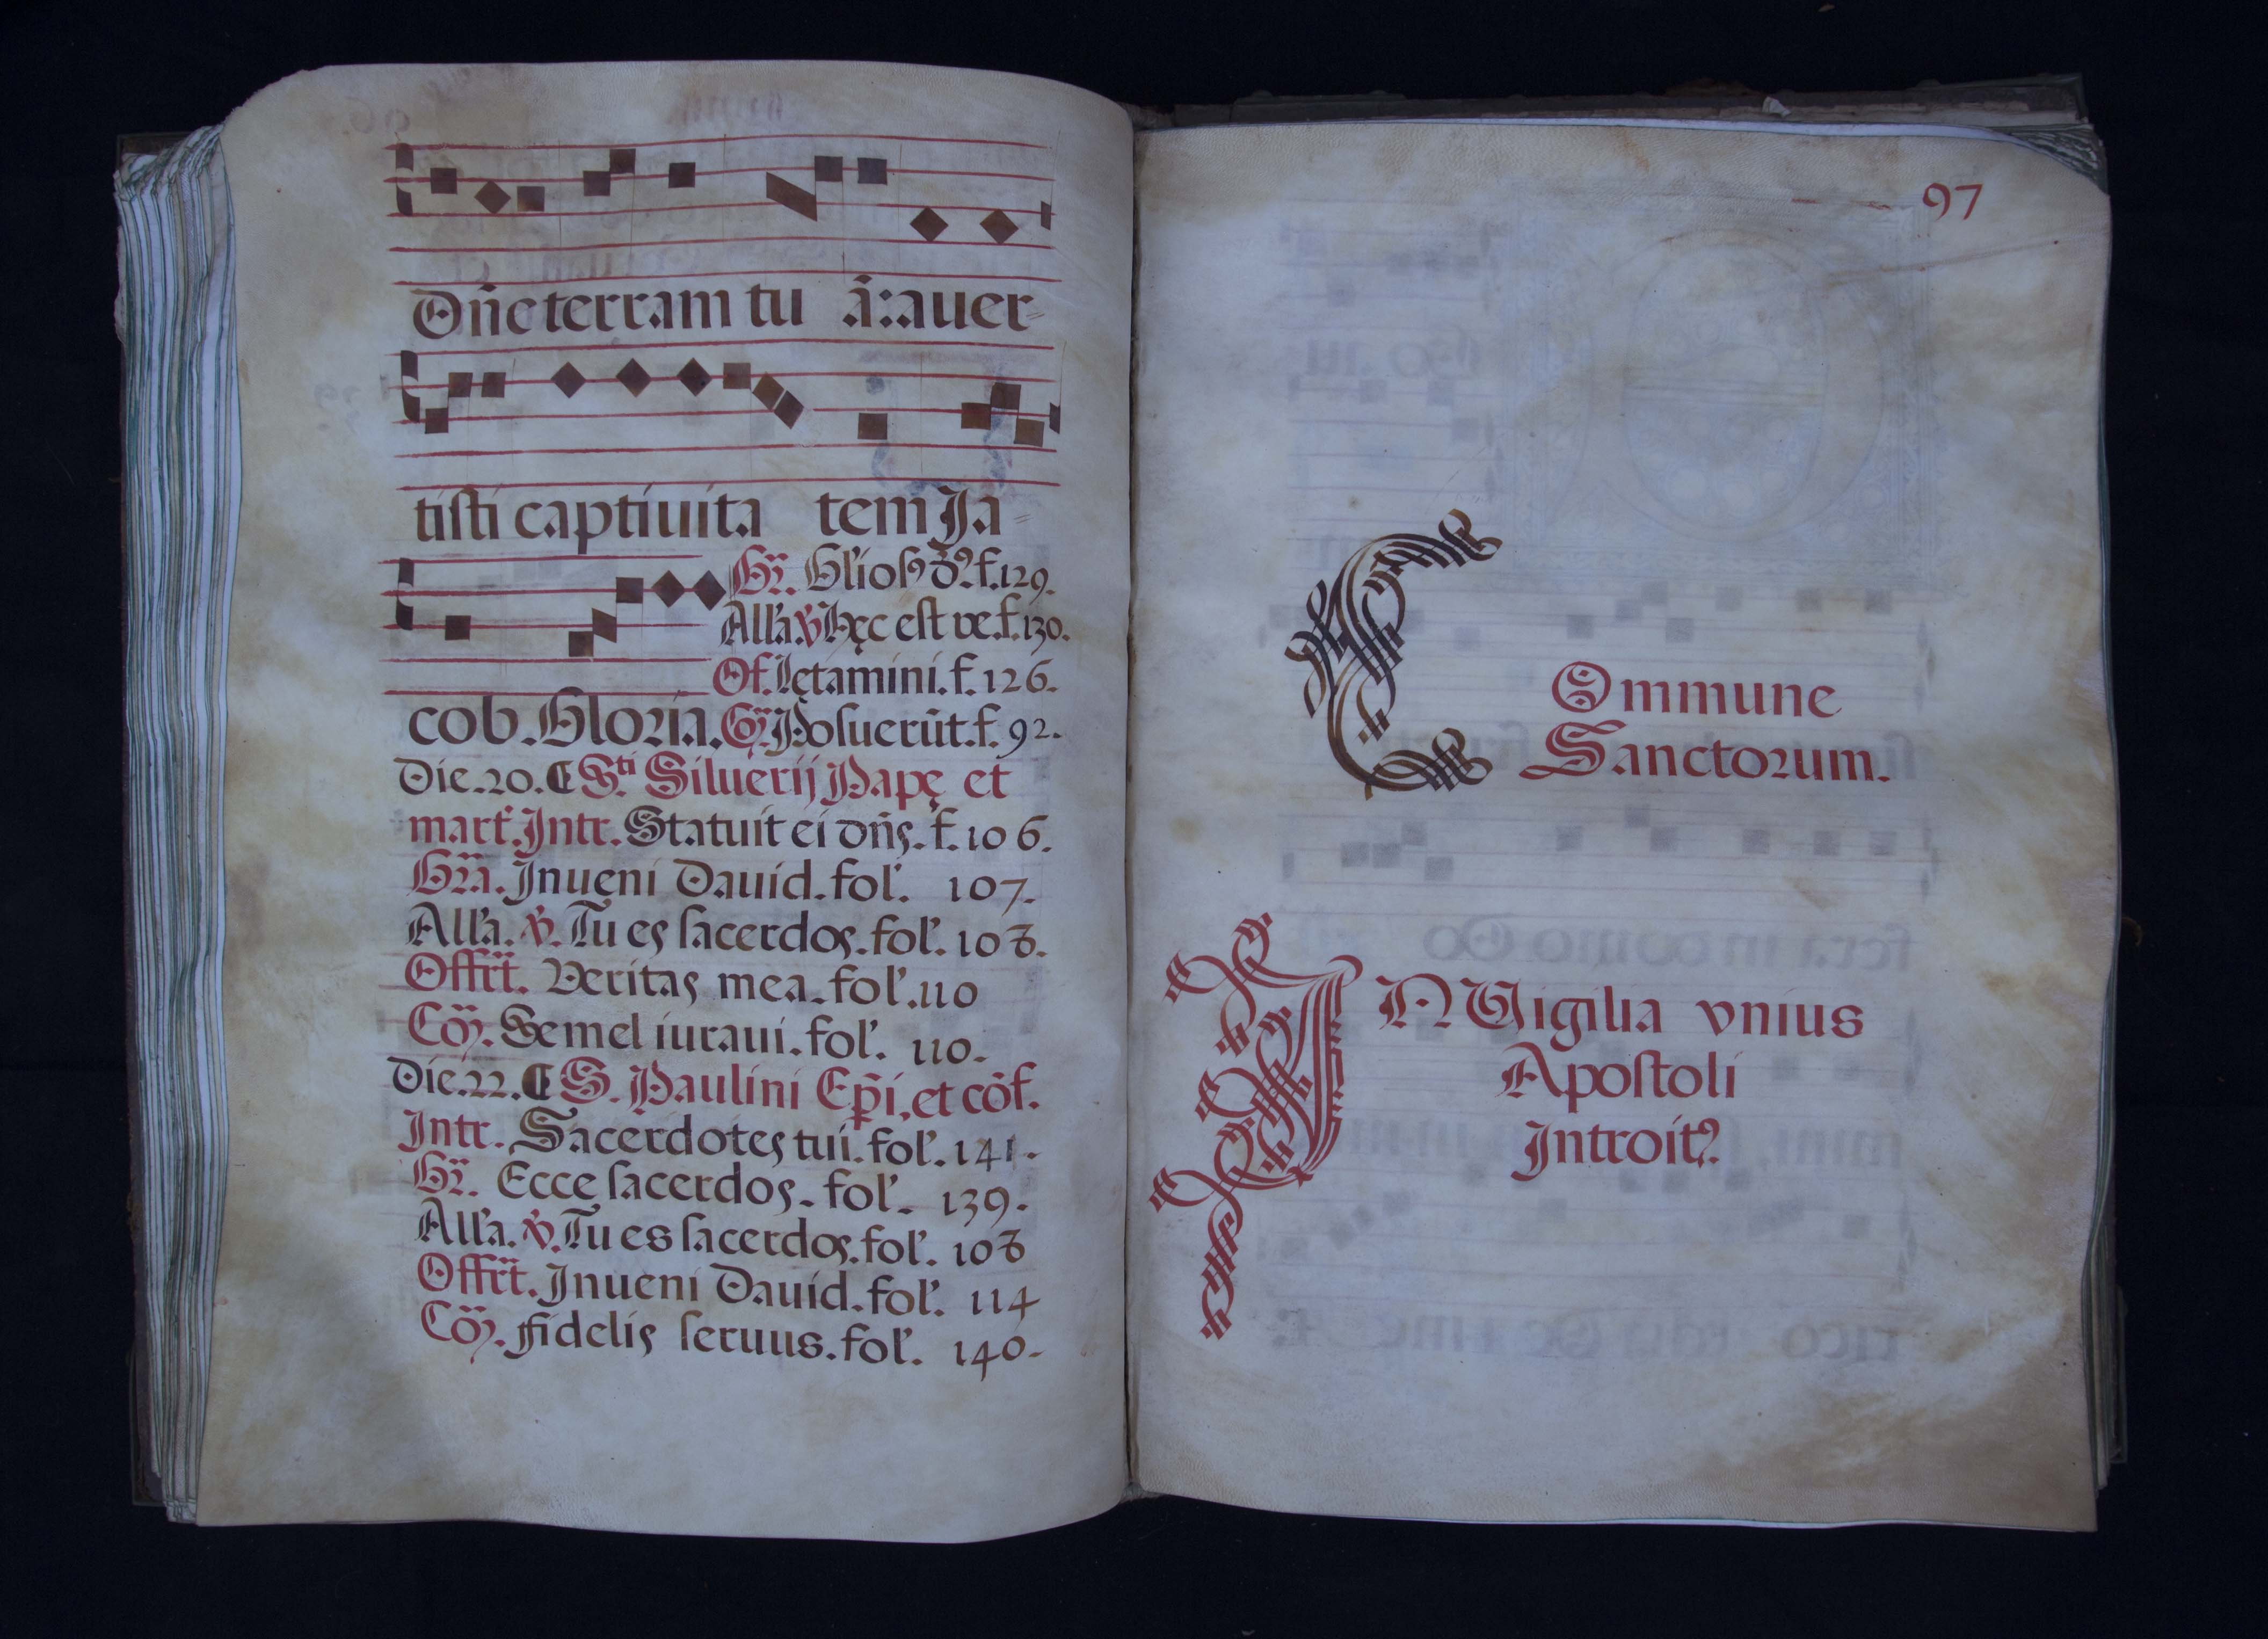 Dñe terram tu ã: auer-
tisti captiuita tem Ja-
Gr. Gl'ios9 d9. f. 129.
All'a. ℣ Hęc est ve. f. 130.
Of. Lętamini. f. 126.
cob. Gloria. Cō. Posuerūt. f. 92.
Die. 20. ¶ S.ti Siluerij Papę et
mart. Intr. Statuit ei dñs. f. 106.
Gra. Inueni Dauid. fol'. 107.
All'a. ℣. Tu es sacerdos. fol'. 108.
Offrt. Veritas mea. fol'. 110
Cō. Semel iuraui. fol'. 110.
Die. 22. ¶ S. Paulini Ep̄i, et cōf.
Intr. Sacerdotes tui. fol'. 141.
Gr. Ecce sacerdos. fol'. 139.
All'a. ℣. Tu es sacerdos. fol'. 108
Offrt. Inueni Dauid. fol'. 114
Cō. fidelis seruus. fol'. 140.
97
COmmune
Sanctorum.
IN Vigilia vnius
Apostoli
Introit9.